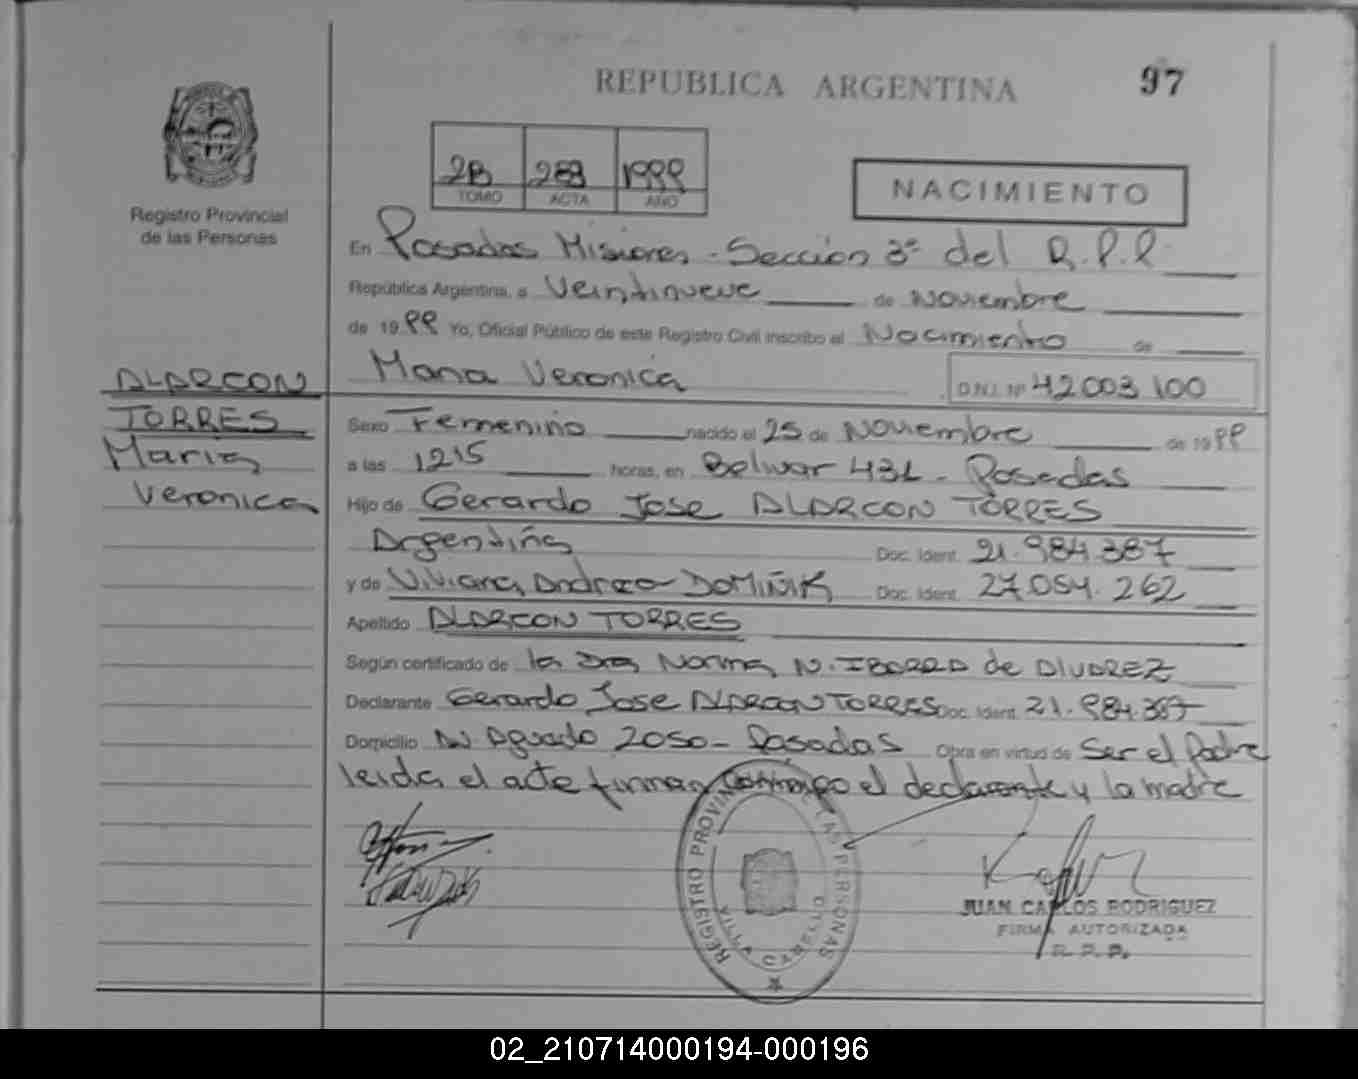 REPUBLICA ARGENTINA
97
2B 1999
TOMO ACTA AÑO
NACIMIENTO
Registro Provincial
de las Personas
En Posadas Misiones - Sección 3ª del R.P.P.
República Argentina, a Veintinueve de Noviembre
de 1999 Yo, Oficial Público de este Registro Civil inscribo el Nacimiento de
Maria Veronica D.N.I. Nº 42003.100
ALARCON
TORRES
Maria
Veronica
Sexo Femenino nacido el 25 de Noviembre de 1999
a las 1215 horas, en Bolivar 431 - Posadas
Hijo de Gerardo Jose ALARCON TORRES
Argentina Doc. Ident. 21.984.387
y de Viviana Andrea DOMIÑIK Doc. Ident. 27.054.262
Apellido ALARCON TORRES
Según certificado de la Dra Norma N. IBARRA de ALVAREZ
Declarante Gerardo Jose ALARCON TORRES Doc. Ident. 21.984.387
Domicilio Aguado 2050 - Posadas Obra en virtud de Ser el Padre
leida el acta firman conmigo el declarante y la madre
REGISTRO PROVINCIAL DE LAS PERSONAS
VILLA CABELLO
JUAN CARLOS RODRIGUEZ
FIRMA AUTORIZADA
R. P. P.
02_210714000194-000196